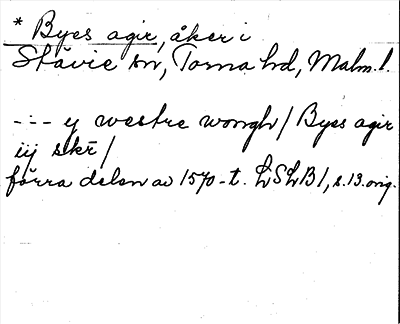 * Byes agir, åker i
Stävie sn, Torna hd, Malm. l.
--- y westre wongh / Byes agir
iij skr̄ /
förra delen av 1570-t. LSLB 1, s. 13. orig.